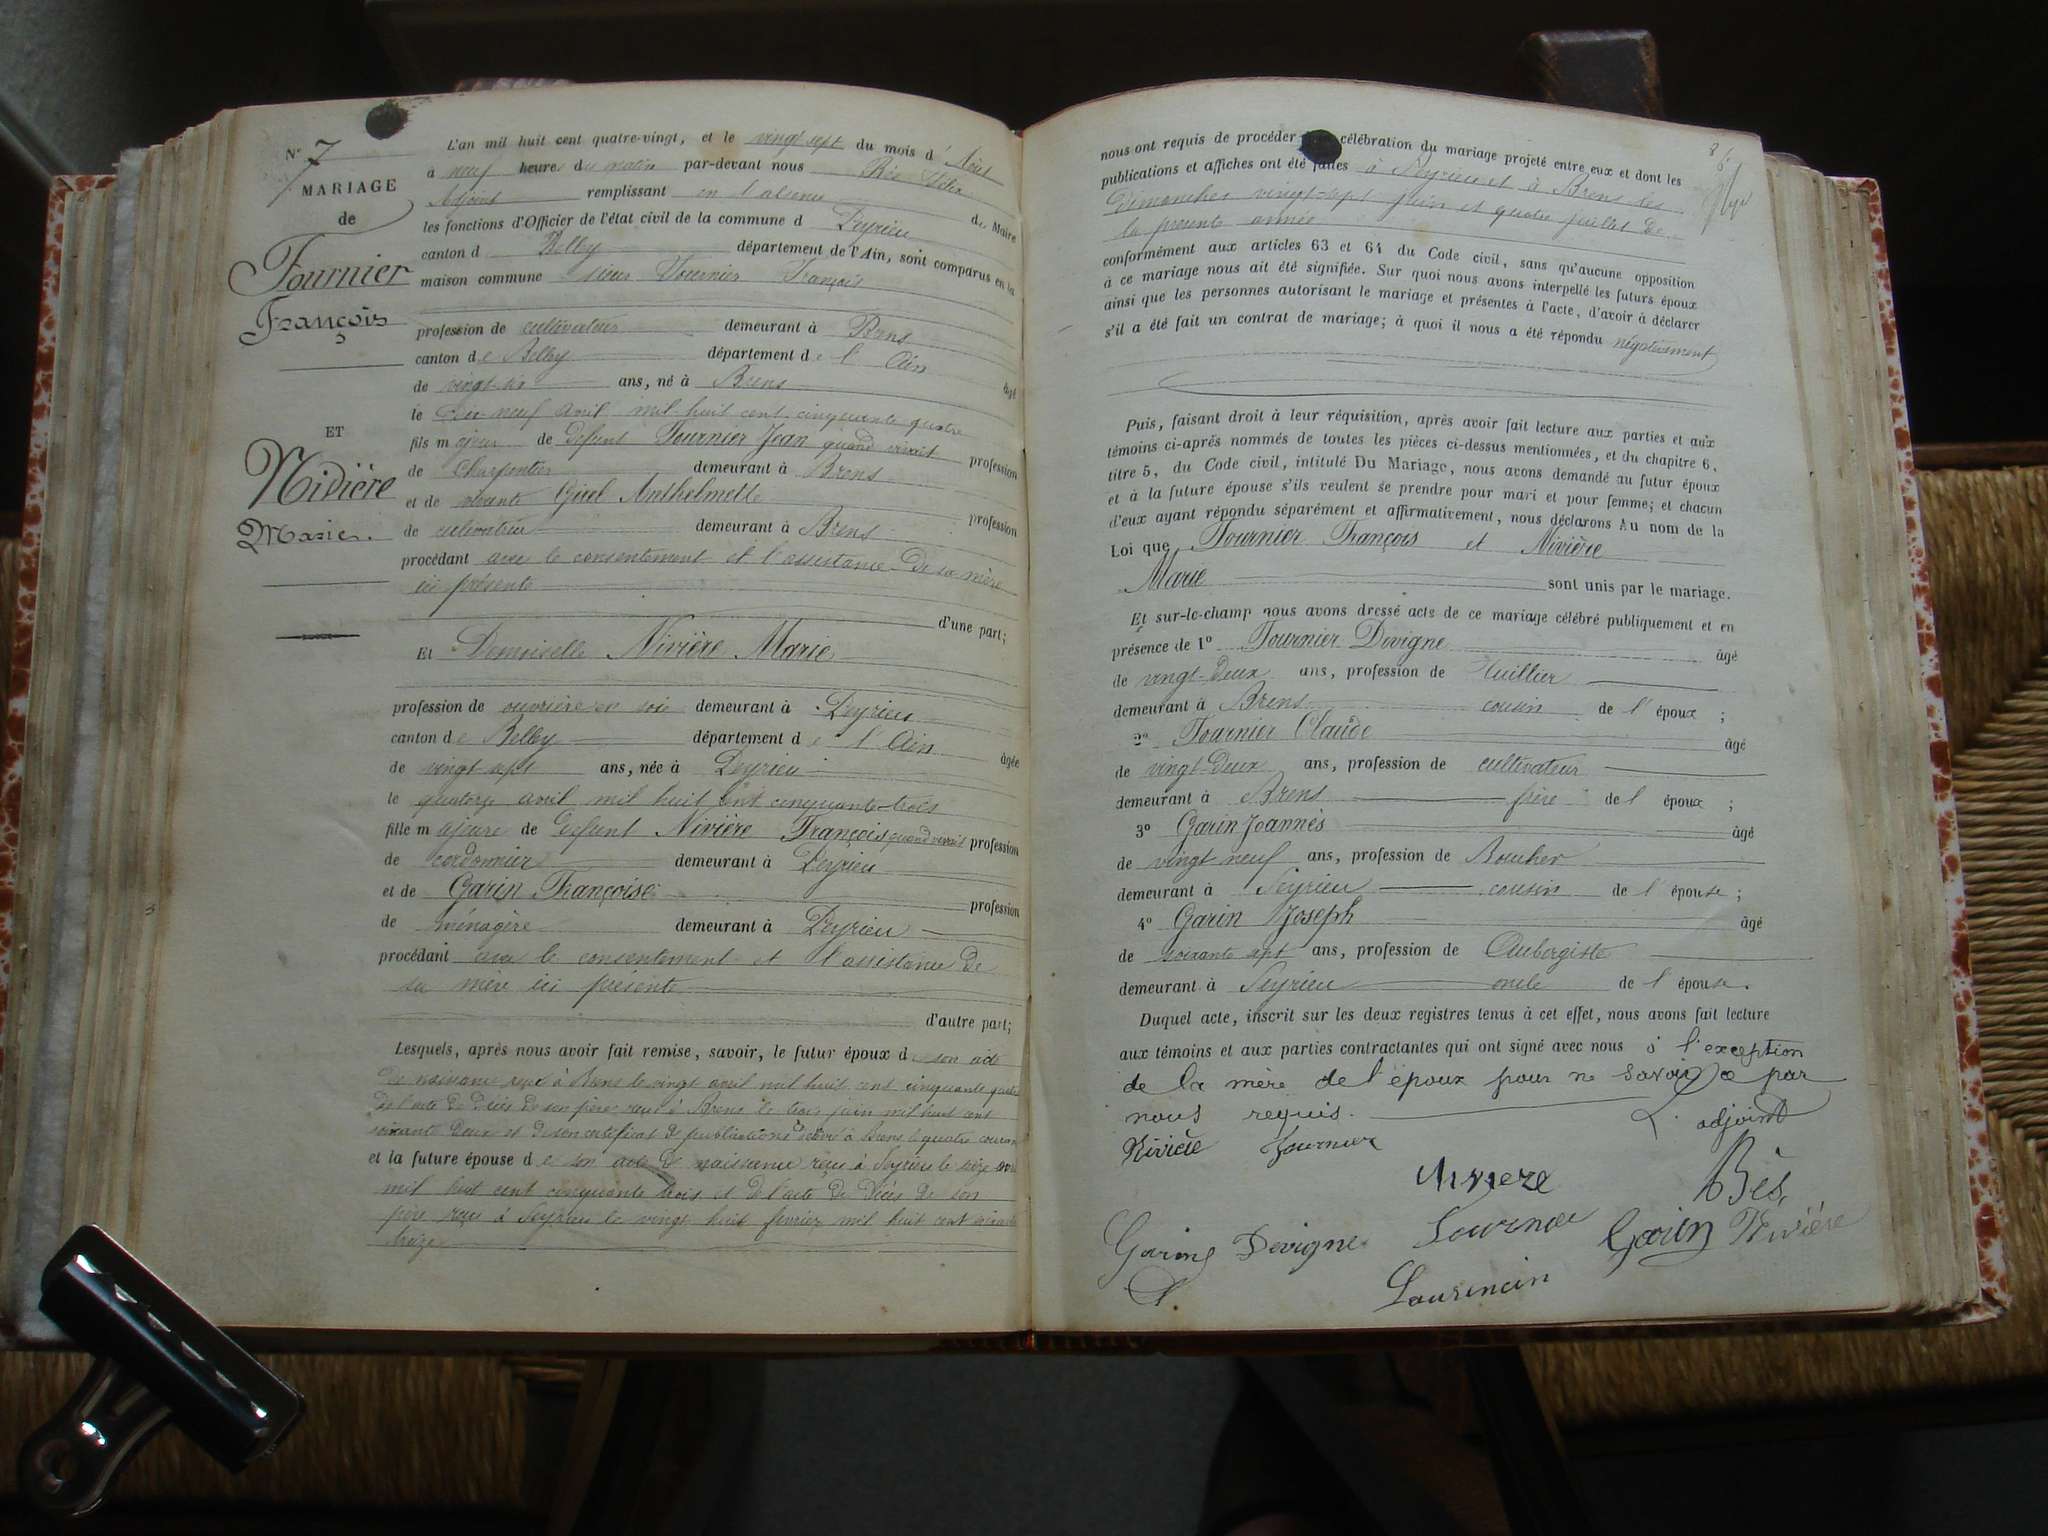 N° 7
MARIAGE
de
Fournier
François
ET
Nivière
Marie.
L'an mil huit cent quatre-vingt, et le vingt sept du mois d'Août
à neuf heures du matin par-devant nous Bès
Adjoint remplissant en l'absence du Maire
les fonctions d'Officier de l'état civil de la commune d Peyrieu
canton d Belley département de l'Ain, sont comparus en la
maison commune sieur Fournier François
profession de cultivateur demeurant à Brens
canton de Belley département de l'Ain âgé
de vingt-six ans, né à Brens
le dix-neuf avril mil-huit cent cinquante quatre
fils majeur de défunt Fournier Jean quand vivait profession
de Charpentier demeurant à Brens
et de vivante Guel Anthelmette profession
de cultivateur demeurant à Brens
procédant avec le consentement et l'assistance de sa mère
ici présente
d'une part;
Et Demoiselle Nivière Marie
profession de ouvrière en soie demeurant à Peyrieu
canton de Belley département de l'Ain âgée
de vingt-sept ans, née à Peyrieu
le quatorze avril mil huit cent cinquante-trois
fille majeure de défunt Nivière François quand vivait profession
de cordonnier demeurant à Peyrieu
et de Garin Françoise profession
de ménagère demeurant à Peyrieu
procédant avec le consentement et l'assistance de
sa mère ici présente
d'autre part;
Lesquels, après nous avoir fait remise, savoir, le futur époux d son acte
de naissance reçu à Brens le vingt avril mil huit cent cinquante quatre
de l'acte de décès de son père reçu à Brens le trois juin mil huit cent
soixante deux et de son certificat de publications délivré à Brens le quatre courant
et la future épouse de son acte de naissance reçu à Peyrieu le seize avril
mil huit cent cinquante trois et de l'acte de décès de son
père reçu à Peyrieu le vingt huit février mil huit cent soixante
treize
nous ont requis de procéder célébration du mariage projeté entre eux et dont les
publications et affiches ont été faites à Peyrieu et à Brens les
Dimanches vingt-sept juin et quatre juillet de
la présente année
conformément aux articles 63 et 64 du Code civil, sans qu'aucune opposition
à ce mariage nous ait été signifiée. Sur quoi nous avons interpellé les futurs époux
ainsi que les personnes autorisant le mariage et présentes à l'acte, d'avoir à déclarer
s'il a été fait un contrat de mariage; à quoi il nous a été répondu négativement
Puis, faisant droit à leur réquisition, après avoir fait lecture aux parties et aux
témoins ci-après nommés de toutes les pièces ci-dessus mentionnées, et du chapitre 6,
titre 5, du Code civil, intitulé Du Mariage, nous avons demandé au futur époux
et à la future épouse s'ils veulent se prendre pour mari et pour femme; et chacun
d'eux ayant répondu séparément et affirmativement, nous déclarons Au nom de la
Loi que Fournier François et Nivière
Marie sont unis par le mariage.
Et sur-le-champ nous avons dressé acte de ce mariage célébré publiquement et en
présence de 1° Fournier Devigne âgé
de vingt-deux ans, profession de Tuillier
demeurant à Brens cousin de l'époux ;
2° Fournier Claude âgé
de vingt-deux ans, profession de cultivateur
demeurant à Brens frère de l époux ;
3° Garin Joannès âgé
de vingt neuf ans, profession de Boucher
demeurant à Peyrieu cousin de l'épouse ;
4° Garin Joseph âgé
de soixante sept ans, profession de Aubergiste
demeurant à Peyrieu oncle de l'épouse.
Duquel acte, inscrit sur les deux registres tenus à cet effet, nous avons fait lecture
aux témoins et aux parties contractantes qui ont signé avec nous à l'exception
de la mère de l'époux pour ne savoir de par
nous requis.
L'adjoint
Nivière Fournier
Nivieze
Bès
Garin Devigne Fournier Garin Nivière
Laurencin